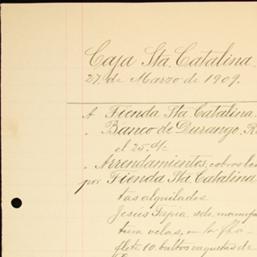 Caja Sta. Catalina.
27 de Marzo de 1909.
A Tienda Sta Catalina
" Banco de Durango, R
el 25 %
" Arrendamientos, cobrados
por Tienda Sta Catalina
tas alquiladas
Jesús Tapia, sde. manufa
tura velas, en la fha
flete 10. bultos vaquetas de